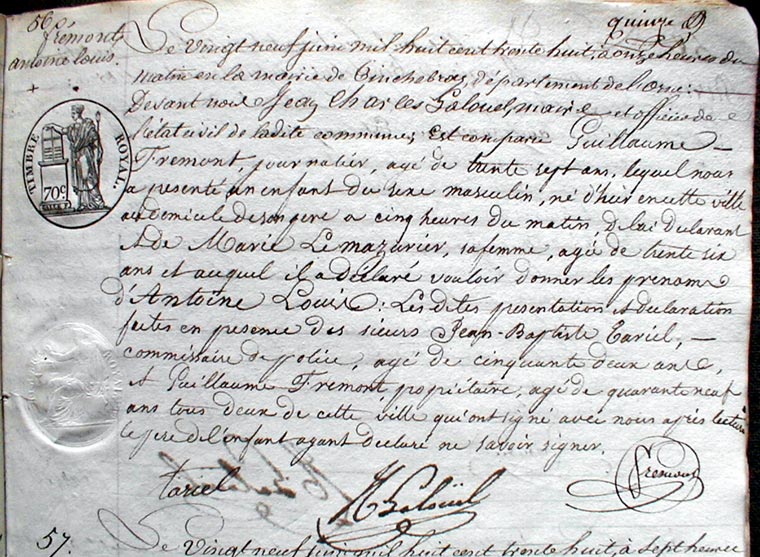 quinze
56
fremont
antoine louis.
Le Vingt neuf juin mil huit cent trente huit, à onze heures du
matin en la mairie de Tinchebray, département de l'orne:
Devant nous Jean Charles Galouel maire et officier de
l'état civil de ladite commune; Est comparu Guillaume –
Fremont, journalier, agé de trente sept ans, lequel nous
a presenté un enfant du sexe masculin, né d'hier en cette ville
au domicile de son pere a cinq heures du matin, de lui déclarant
& de Marie Lemazurier, sa femme, agée de trente six
ans et auquel il a déclaré vouloir donner les prenoms
d'Antoine Louis: Les dites presentation & declaration
faites en presence des sieurs Jean-Baptiste Tariel, –
commissaire de police, agé de cinquante deux ans,
& Guillaume Fremont, propriétaire, agé de quarante neuf
ans tous deux de cette ville qui ont signé avec nous après lecture
le pere de l'enfant ayant declaré ne savoir signer.
tariel
Galoüel
Fremont
TIMBRE ROYAL.
70c.
57.
Le Vingt neuf juin mil huit cent trente huit, à sept heures